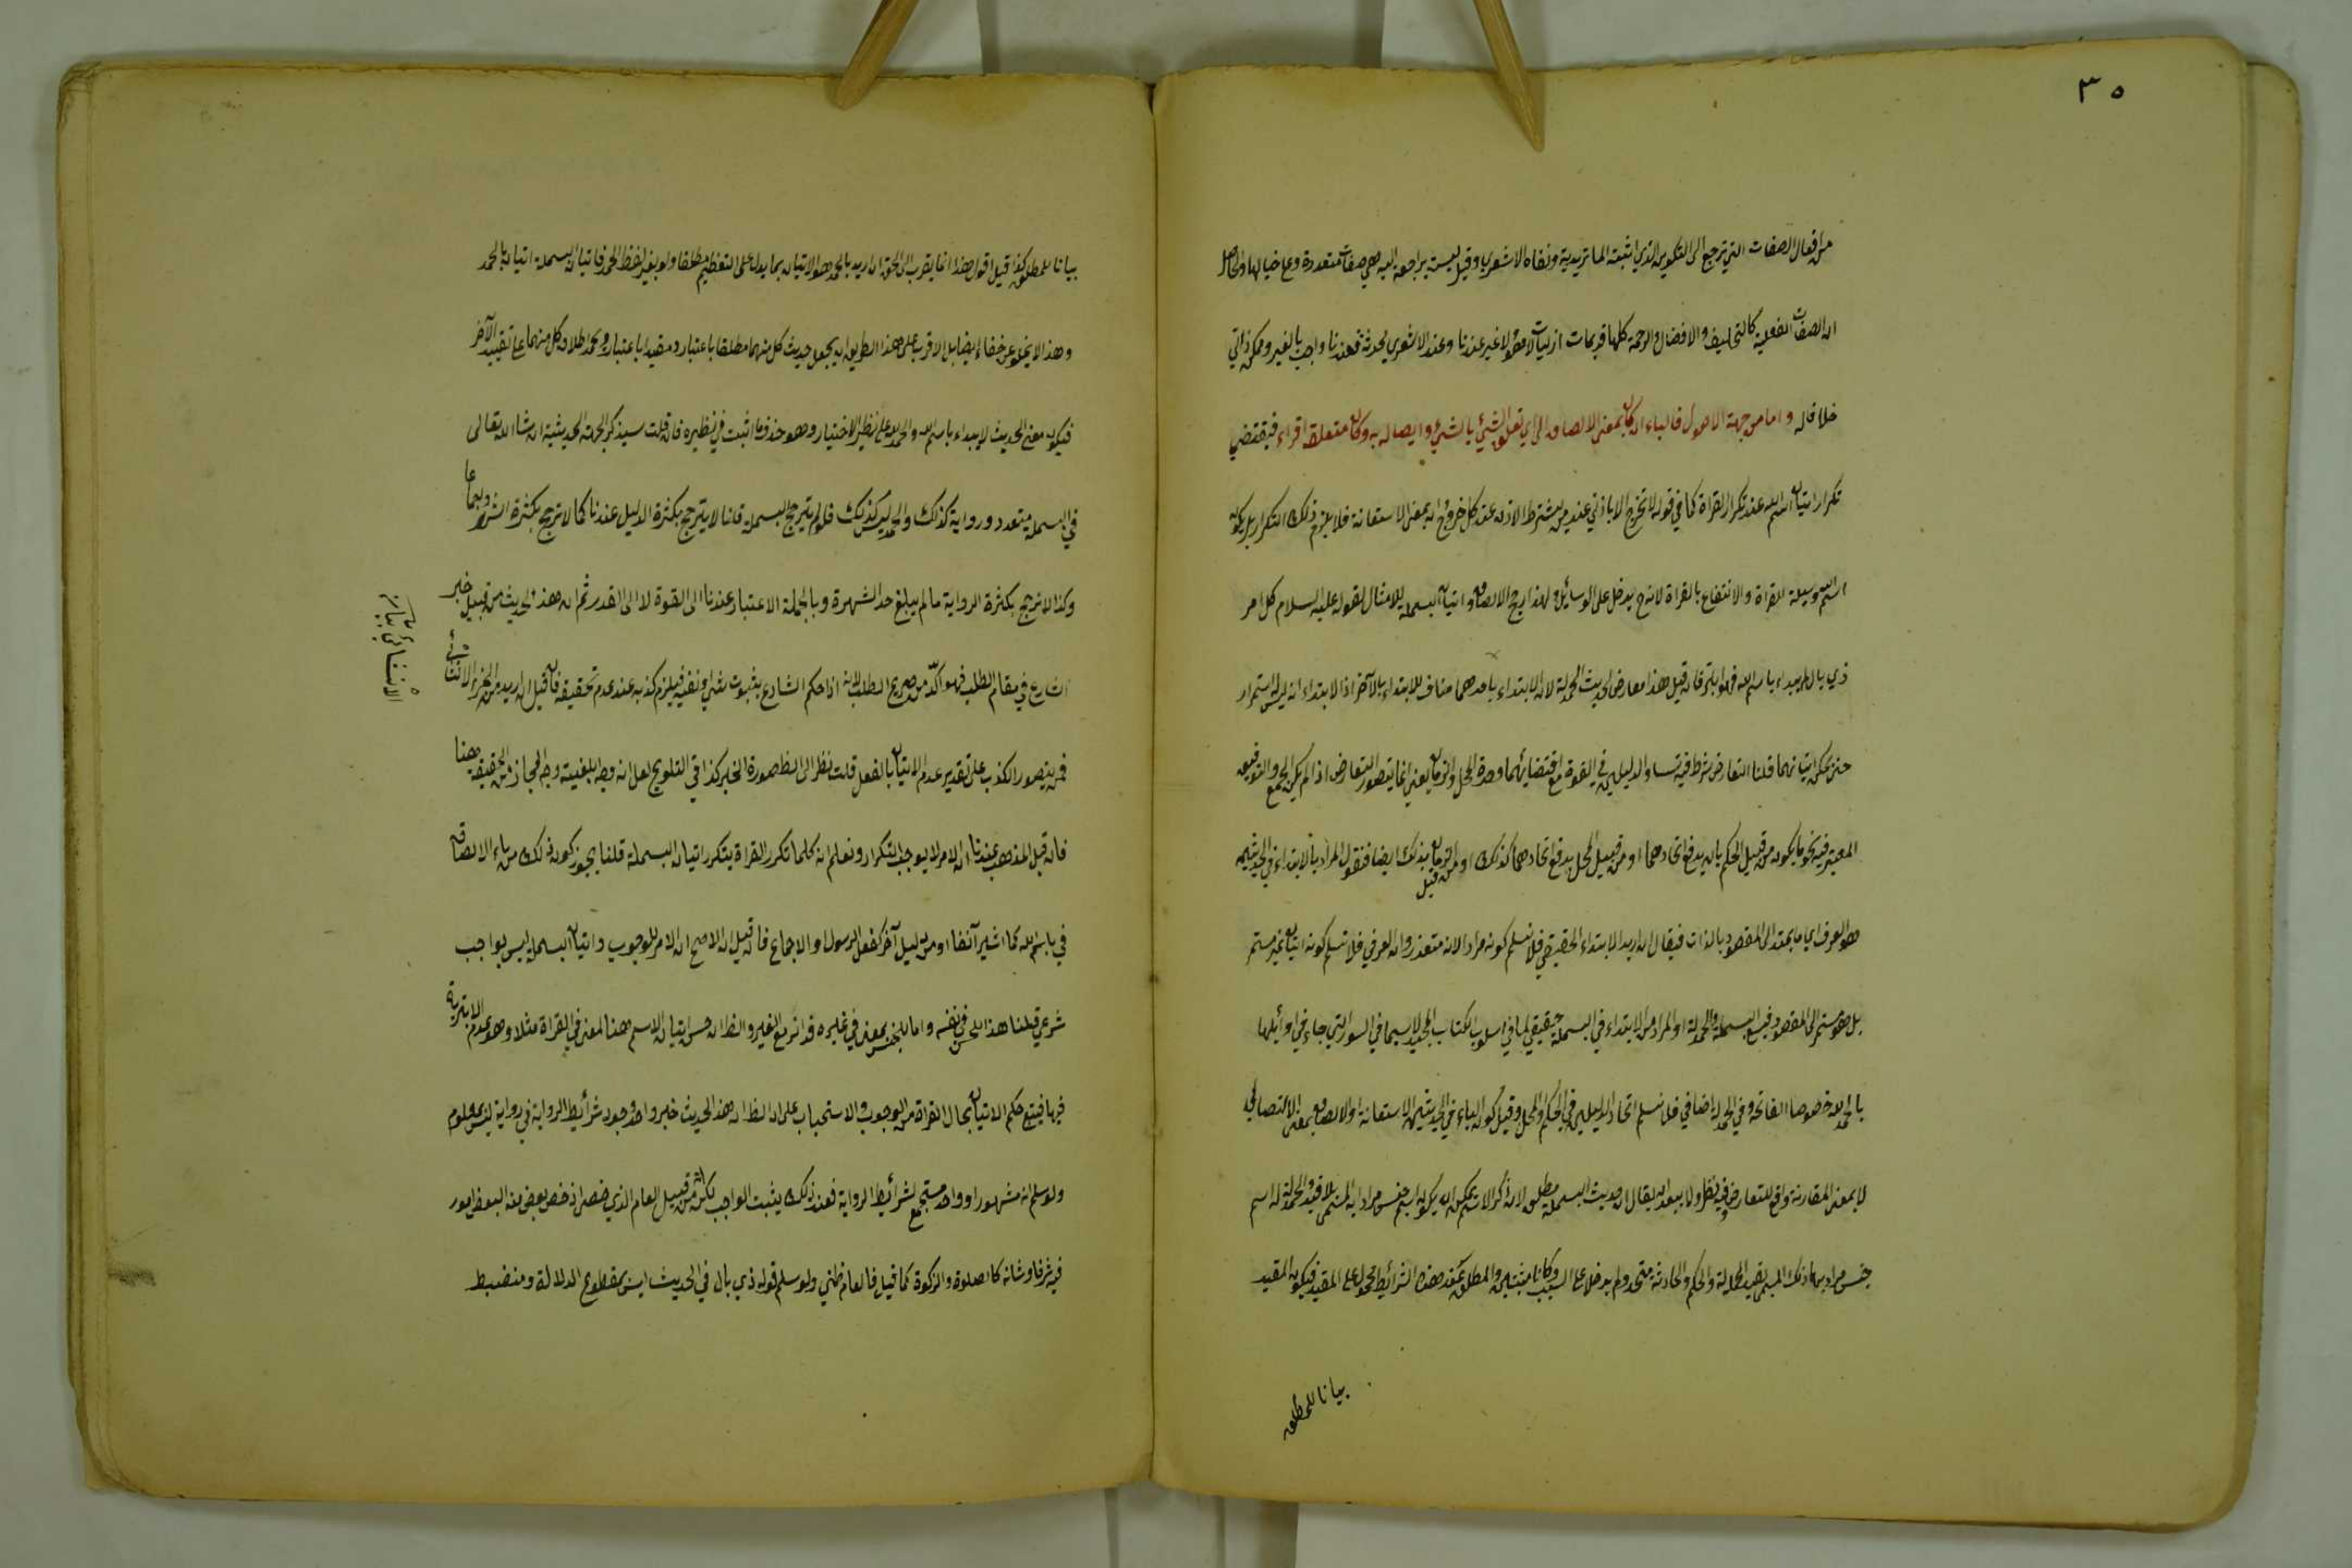 ٣٥
من افعال الصفات التي ترجع الى التكوين الذي اثبته الماتريدية ونفاه الاشعري وقيل ليست براجعة اليه بل هي صفات متعددة وعلى حيالها والحاصل
ان الصفات الفعلية كالتخليق والافضال والرحمة كلها قديمات ازليات لا هو ولا غير عندنا وعند الاشعري محدثة فعندنا واجب بالغير وممكن ذاتي
خلافا له واما من جهة الاصول فالباء ان كان بمعنى الالصاق اي تعلق الشئ بالشئ وايصاله به وكان متعلقه اقراء فيقتضي
تكرار اتيان اسم الله عند تكرار القراة كما في قوله لا تخرج الا باذني عند من يشترط الاذن عند كل خروج وان بمعنى الاستعانة فلا يلزم ذلك التكرار بل يكون
اسم الله وسيلة القراة والانتفاع بالقراة لانه ح يدخل على الوسائل ولهذا رجح الالصاق واتيان البسملة للامتثال لقوله عليه السلام كل امر
ذي بال لم يبداء باسم الله فهو ابتر فان قيل هذا معارض لحديث الحمدلة لان الابتداء باحدهما مناف للابتداء بالآخر اذ الابتداء اني ليس له استمرار
حتى يمكن اتيانهما قلنا التعارض شرط فيه تساو الدليلين في القوة مع اقتضائهما وحدة المحل والزمان يعني انما يتصور التعارض اذا لم يكن الجمع والتوفيق
المعتبر فيه نحو ما يكون من قبيل الحكم بان يدفع اتحادهما او من قبيل المحل يدفع اتحادهما كذلك او من قبيل الزمان بذلك ايضا فنقول المراد بالابتداء في الحديثين
هو العرفي اي ما يمتد الى المقصود بالذات فيقال ان اريد الابتداء الحقيقي فلا نسلم كونه مرادا لانه متعذر وان العرفي فلا نسلم كونه اتيان غير مستمر
بل هو مستمر الى المقصود فيسع البسملة والحمدلة او المراد من الابتداء في البسملة حقيقي لما في اسلوب الكتاب المجيد لا سيما في السور التي جاء في اوائلها
بالحمد لله خصوصا الفاتحة وفي الحمدلة اضافي فلا نسلم اتحاد الدليلين في الحكم والمحل وقيل كون الباء في الحديثين للاستعانة او الالصاق بمعنى الاتصال
لا بمعنى المقارنة دافع للتعارض وفيه نظر ولا يبعد ان يقال ان حديث البسملة مطلق لان ذكر الاسم يمكن ان يكون اسم جنس مراد به المسمى بلا قيد والحمدلة اسم
جنس مراد بها ذلك المسمى بقيد الحمدلة والحكم والحادثة متحد ولم يدخلا على السبب وكانا مثبتين والمطلق عند هذه الشرائط محمول على المقيد فيكون المقيد
بيانا للمطلق
بيانا للمطلق كذا قيل اقول هذا انما يقرب الى الحق ان اريد بالحمد هو الاتيان بما يدل على التعظيم مطلقا ولو بغير لفظ الحمد فاتيان البسملة اتيان بالحمد
وهذا لا يخلو عن خفاء ايضا بل الاقرب على هذا الطريق ان يجعل حديث كل منهما مطلقا باعتبار ومقيدا باعتبار ويحمل اطلاق كل منهما على تقييد الآخر
فيكون معنى الحديث لا يبداء باسم الله والحمد لله على نظير الاختيار وهو حذف ما اثبت في نظيره فان قلت سيذكر الجملة الحديثية ان شاء الله تعالى
في البسملة متعدد ورواية كذلك والحمد ليس كذلك فلو لم يترجح البسملة قلنا لا يترجح بكثرة الدليل عندنا كما لا ترجح بكثرة الشهود اجماعا
وكذا لا ترجح بكثرة الرواية ما لم يبلغ حد الشهرة وبالجملة الاعتبار عندنا الى القوة لا الى القدر ثم ان هذا الحديث من قبيل خبر
الشارع في مقام الطلب فهو اكد من صريح الطلب لانه اذا حكم الشارع بثبوت شئ او نفيه فيلزم كذبه عند عدم تحقيقه فان قيل ان اريد من الخبر الانشائي
فمن يتصور الكذب على تقدير عدم الاتيان بالفعل قلت نظر الى الظ صورة الخبر كذا في التلويح لعل انه وجه ابلغيته وجه المجاز من الحقيقة هنا
فان قيل المذهب عندنا ان الامر لا يوجب التكرار ونعلم انه كلما تكرر القراة يتكرر اتيان البسملة قلنا يجوز كون ذلك من باء الالصاق
في باسم الله كما اشير آنفا او من دليل آخر كفعل الرسول او الاجماع فان قيل ان الاصح ان الامر للوجوب واتيان البسملة ليس بواجب
شرعي قلنا هذا الحسن في نفسه واما لحسن بمعنى في غيره فدائر مع الغير والظ ان حسن اتيان الاسم هنا لمعنى في القراة مثلا وهو عدم الابترية
فيها فيتبع حكم الاتيان بحال القراة من الوجوب والاستحباب على ان الظ ان هذا الحديث خبر واحد ووجود شرائط الرواية في رواية ليس بمعلوم
ولو سلم انه مشهورا وواحد مستجمع لشرائط الرواية فعند ذلك يثبت الواجب لكنه من قبيل العام الذي خص اذ خص بعض منه البعض امور
فيه شرفا وشانه كالصلوة والزكوة كما قيل فالعام ظني ولو سلم قوله ذي بال في الحديث ليس بمقطوع الدلالة ومنضبط